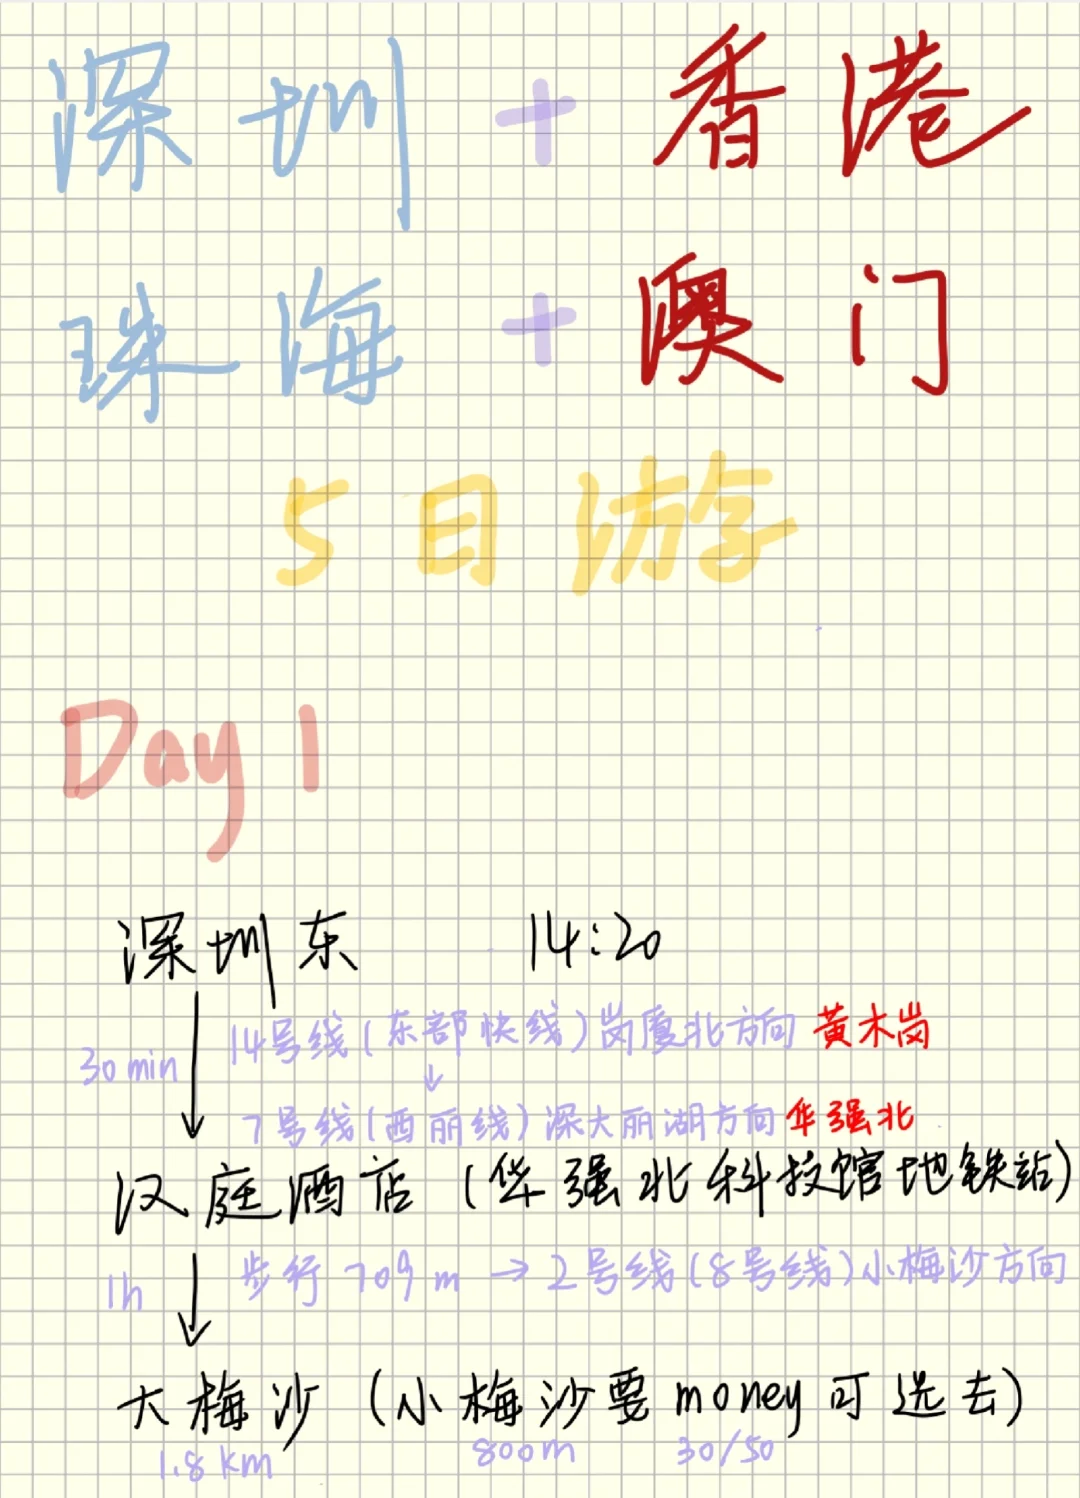 深圳 + 香港
珠海 + 澳门
5日游
Day 1
深圳东 14:20
30min 14号线(东部快线)岗厦北方向 黄木岗
↓
7号线(西丽线)深大丽湖方向 华强北
汉庭酒店(华强北科技馆地铁站)
1h 步行709m → 2号线(8号线)小梅沙方向
大梅沙(小梅沙要money可选去)
1.8km 800m 30/50